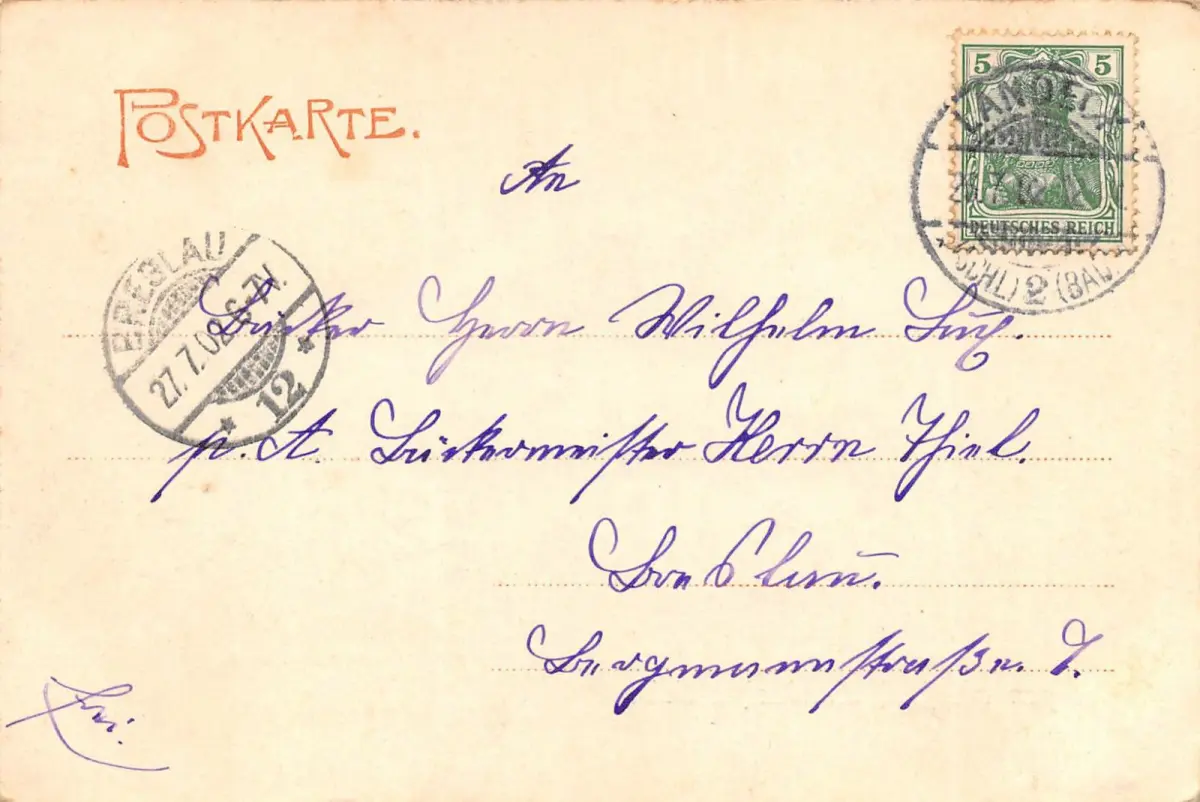 POSTKARTE.
5 5
DEUTSCHES REICH
LANDECK
(SCHL) 2 (BAD)
An
BRESLAU
27.7.02 6-7N.
12
Bäcker Herrn Wilhelm
p. A. Bäckermeister Herrn Thiel.
Breslau.
Bergmannstraße. 7.
Frei.